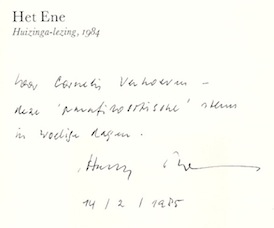 Het Ene
Huizinga-lezing, 1984
Voor Cornelis Verhoeven –
deze 'parafilosofische' stem
in woelige dagen.
Harry
14 / 2 / 1985